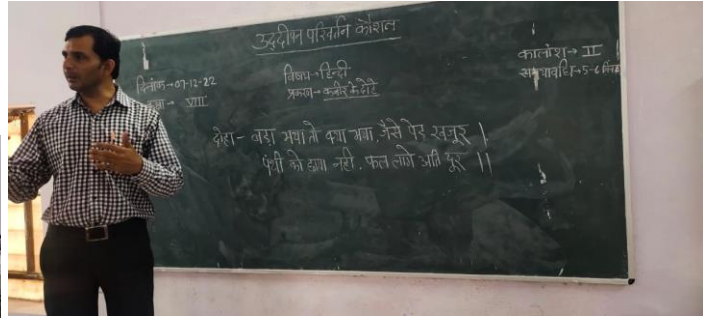 उद्दीपन परिवर्तन कौशल
दिनांक → 07-12-22
कक्षा → VIII
विषय → हिन्दी
प्रकरण → कबीर के दोहे
कालांश → II
समयावधि → 5-6 मिनट
दोहा - बड़ा भया तो क्या भया, जैसे पेड़ खजूर |
पंथी को छाया नही, फल लागे अति दूर ||